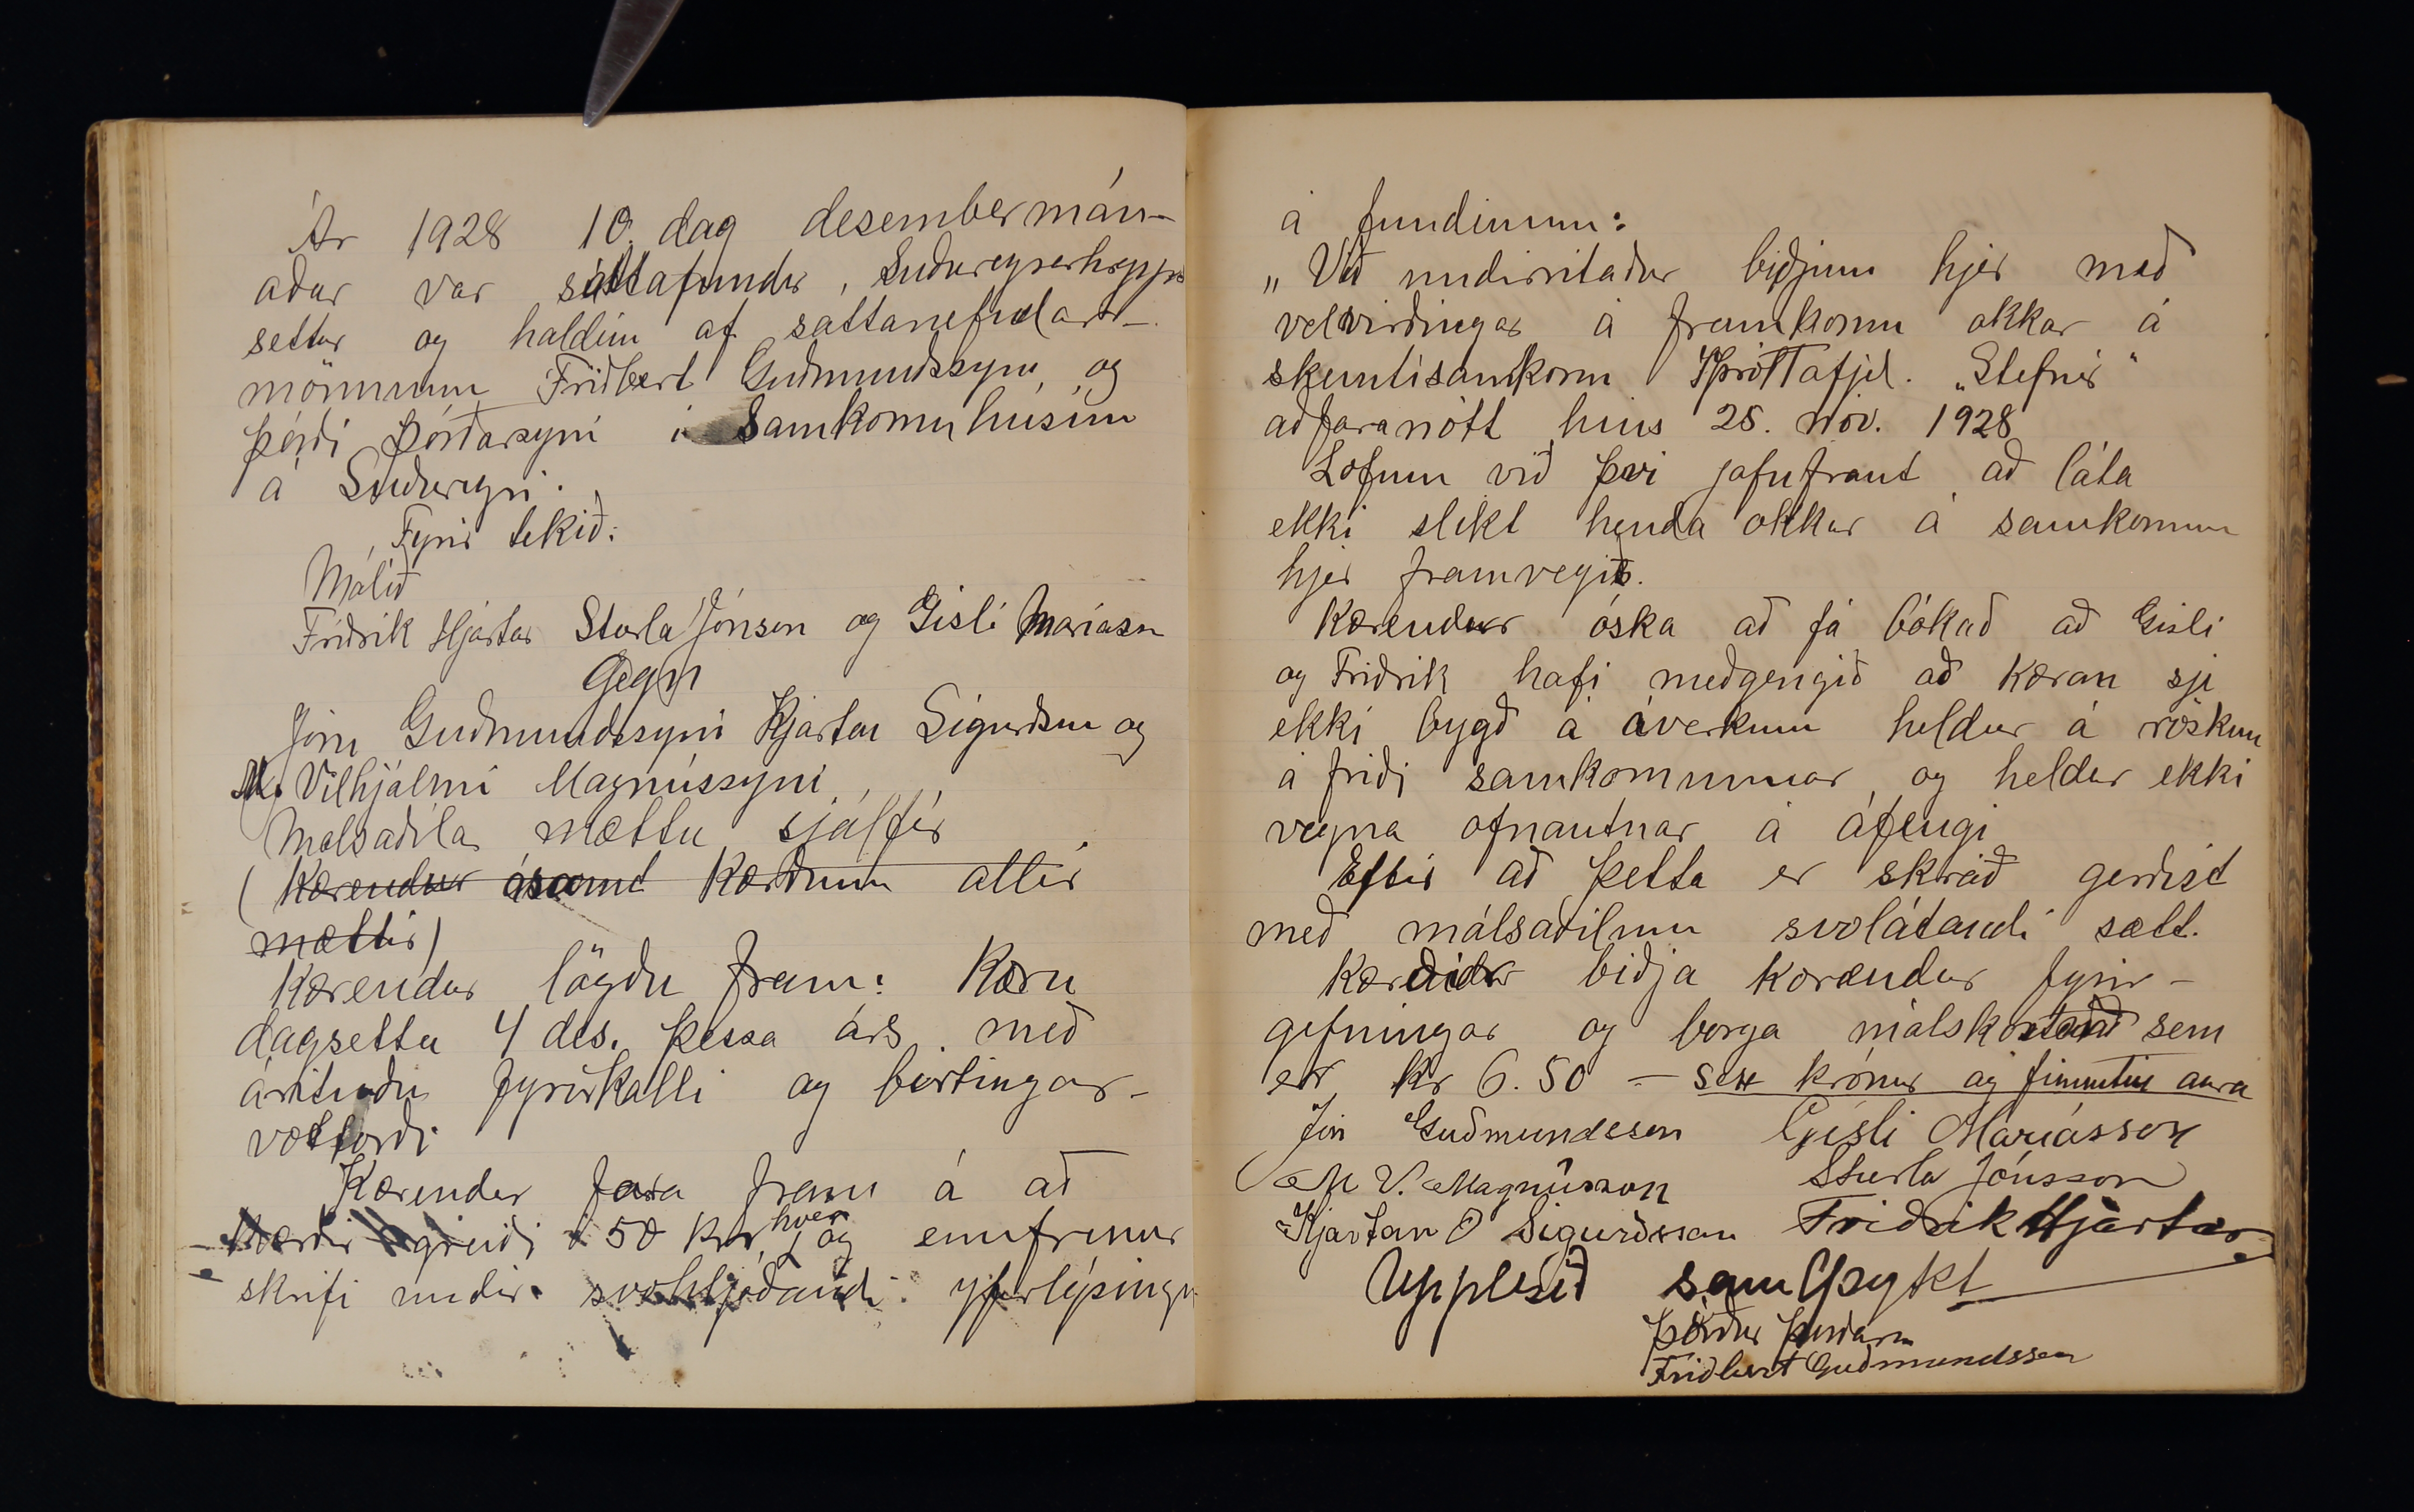 Ár 1928 10. dag desembermán-
aðar var sáttafundur, Suðureyrarhrepps
settur og haldinn af sáttanefndar-
mönnunum Friðbert Guðmundssyni og
Þórði Þórðarsyni í Samkomuhúsinu
á Suðureyri.
Fyrir tekið:
Málið
Friðrik Hjartar Sturla Jónsson og Gísli Maríasson
Gegn
Jóni Guðmundssyni Kjartan Sigurðsson og
M. Vilhjálmi Magnússyni
Málsaðilar mættu sjálfir
(Kærendur ásamt kærðum allir
mættir)
Kærendur lögðu fram: Kæru
dagsettu 4 des. þessa árs með
árituðu fyrirkalli og birtingar-
vottorði
Kærendur fara fram á að
Kærðir greiði 50 kr hver og ennfremur
skrifi undir svohljóðandi yfirlýsingu
á fundinum:
„Við undirritaðir biðjum hjer með
velvirðingar á framkomu okkar á
skemtisamkomu Íþróttafjel. „Stefnir"
aðfaranótt hins 25. nóv. 1928
Lofum við því jafnframt að láta
ekki slíkt henda okkur á samkomum
hjer framvegis.
Kærendur óska að fá bókað að Gísli
og Friðrik hafi meðgengið að kæran sje
ekki bygð á áverkum heldur á röskun
á friði samkomunnar og heldur ekki
vegna ofnautnar á áfengi
Eftir að þetta er skráð gerðist
með málsaðilum svolátandi sætt.
Kærðir biðja kærendur fyrir-
gefningar og borga málskostnað sem
er kr 6.50 - sex krónur og fimmtíu aura
Jón Guðmundsson Gísli Maríasson
M V. Magnússon Sturla Jónsson
Kjartan O Sigurðsson Friðrik Hjartar
Upplesið samþykt
Þórður Þórðarson
Friðbert Guðmundsson